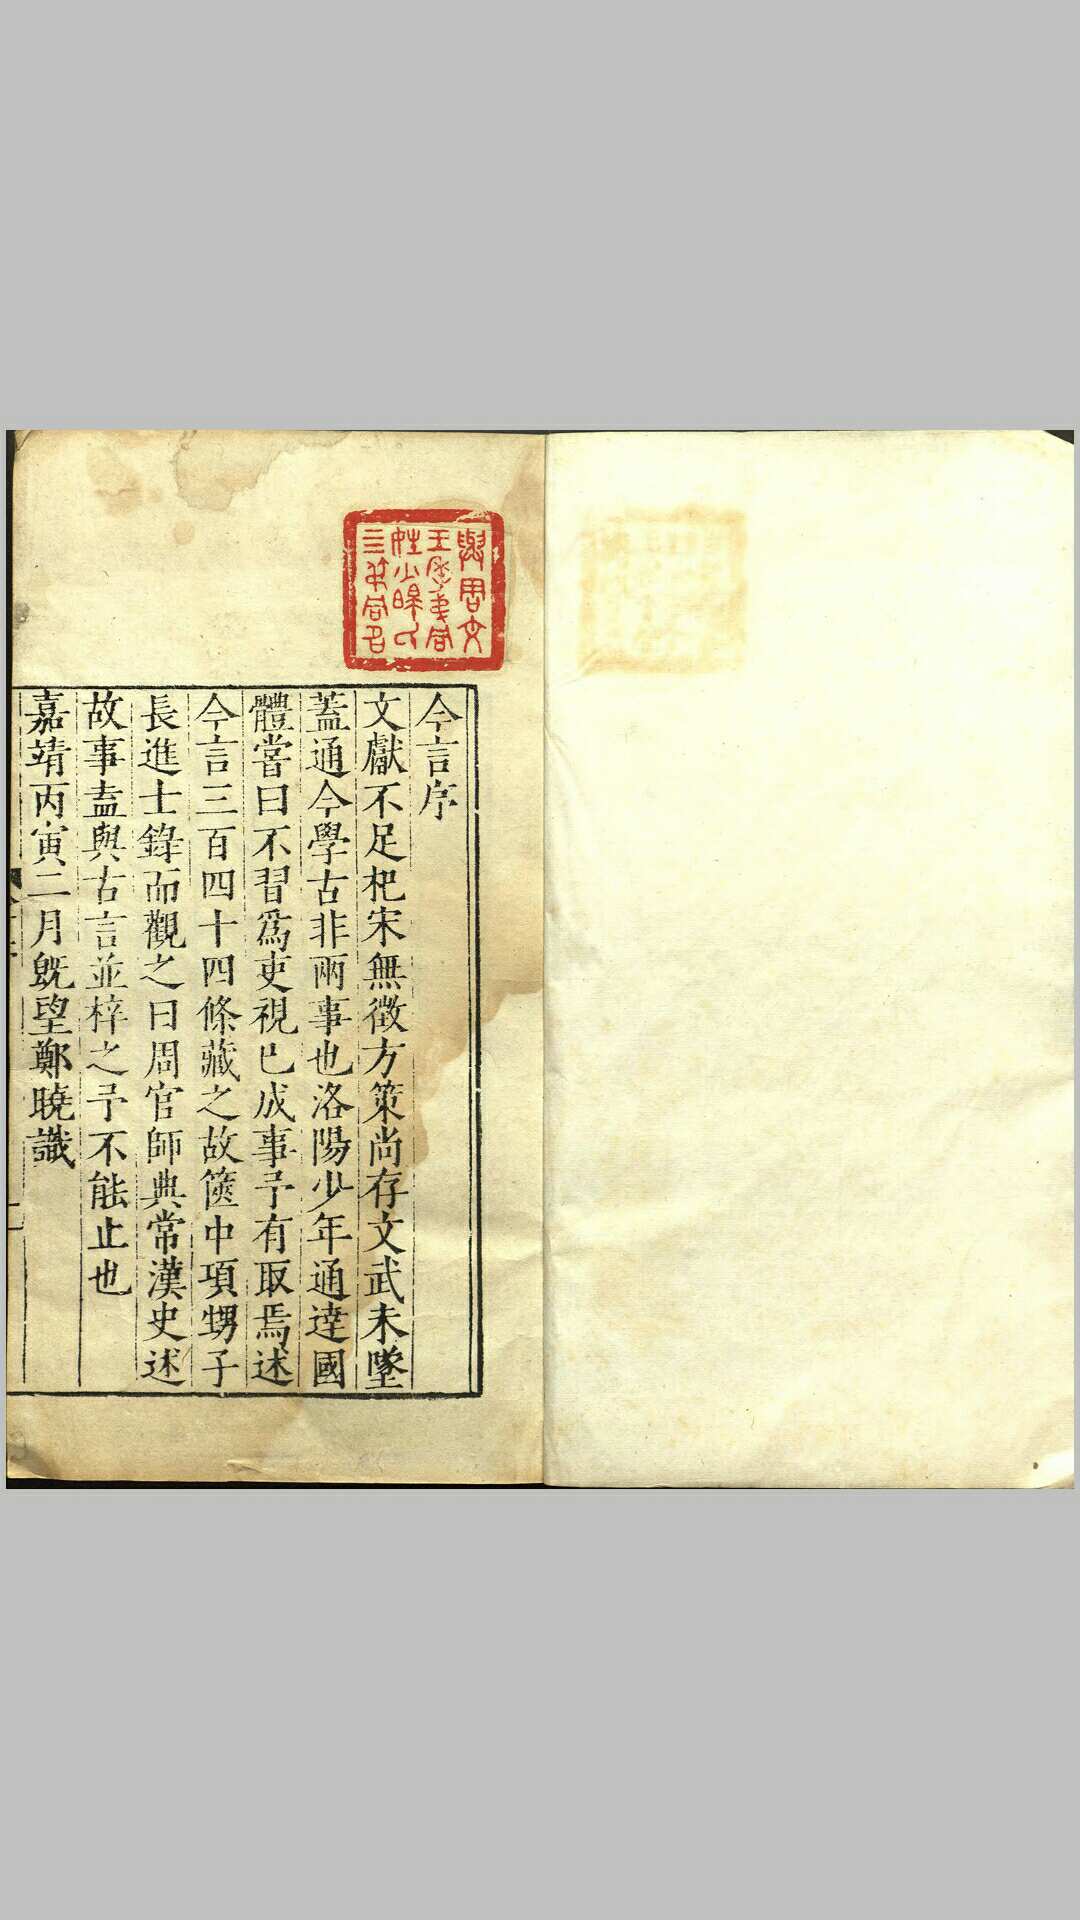 與周文
姓少皞氏
今言序
文獻不足杞宋無徵方策尚存文武未墜
蓋通今學古非兩事也洛陽少年通達國
體嘗曰不習爲吏視已成事予有取焉述
今言三百四十四條藏之故篋中項甥子
長進士錄而觀之曰周官師典常漢史述
故事盍與古言並梓之予不能止也
嘉靖丙寅二月旣望鄭曉識